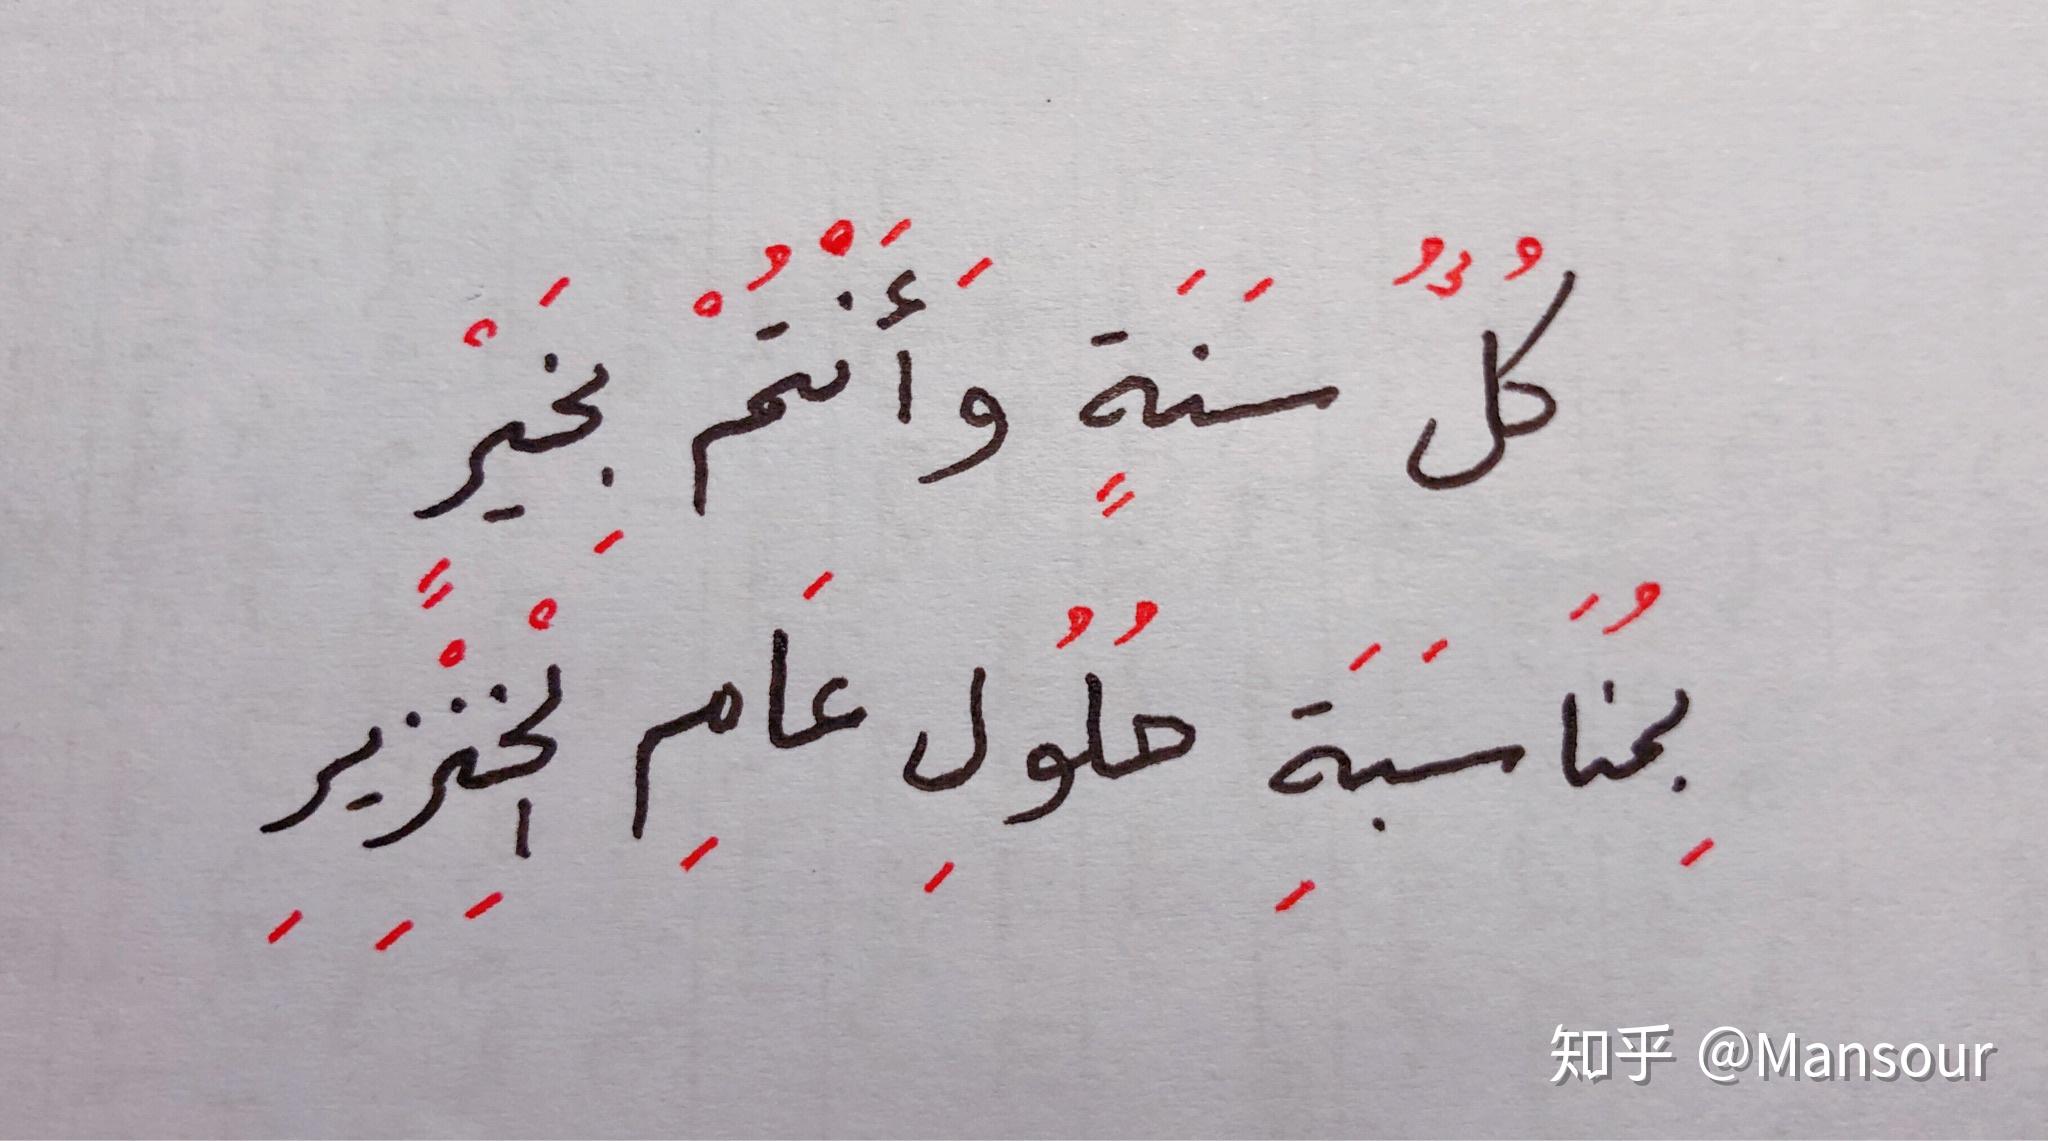 كُلُّ سَنَةٍ وَأَنْتُمْ بِخَيْرٍ
بِمُنَاسَبَةِ حُلُولِ عَامِ الْخِنْزِيرِ
知乎 @Mansour